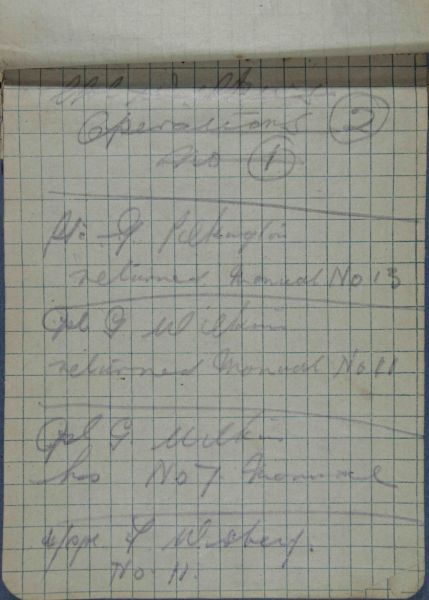 Operations 2
No 1
Pte G Pilkington
returned Manual No 13
Cpl G Wilkins
returned Manual No 11
Cpl G Wilkin
has No 7 Manual
No 11.